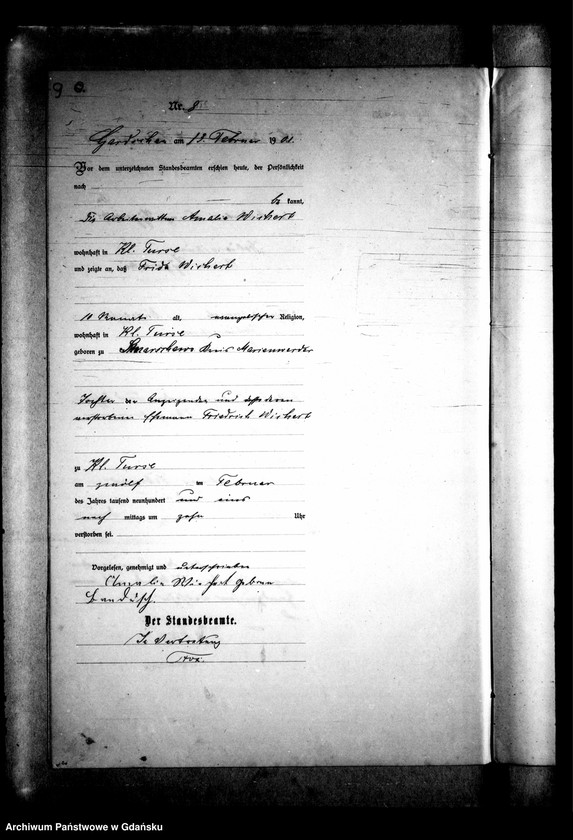 9
Nr. 9
am 13. Februar 1901.
Vor dem unterzeichneten Standesbeamten erschien heute, der Persönlichkeit
nach
be kannt,
die Amalie Wichert
wohnhaft in Kl. Turse
und zeigte an, daß Frida Wichert
10 Monate alt, evangelischer Religion,
wohnhaft in Kl. Turse
geboren zu Kreis Marienwerder
Tochter der Anzeigenden und deren
verstorbenen Ehemann Friedrich Wichert
zu Kl. Turse
am zwölf ten Februar
des Jahres tausend neunhundert und eins
nach mittags um zehn Uhr
verstorben sei.
Vorgelesen, genehmigt und unterschrieben
Amalie Wichert geborene
Der Standesbeamte.
In Vertretung
Archiwum Państwowe w Gdańsku